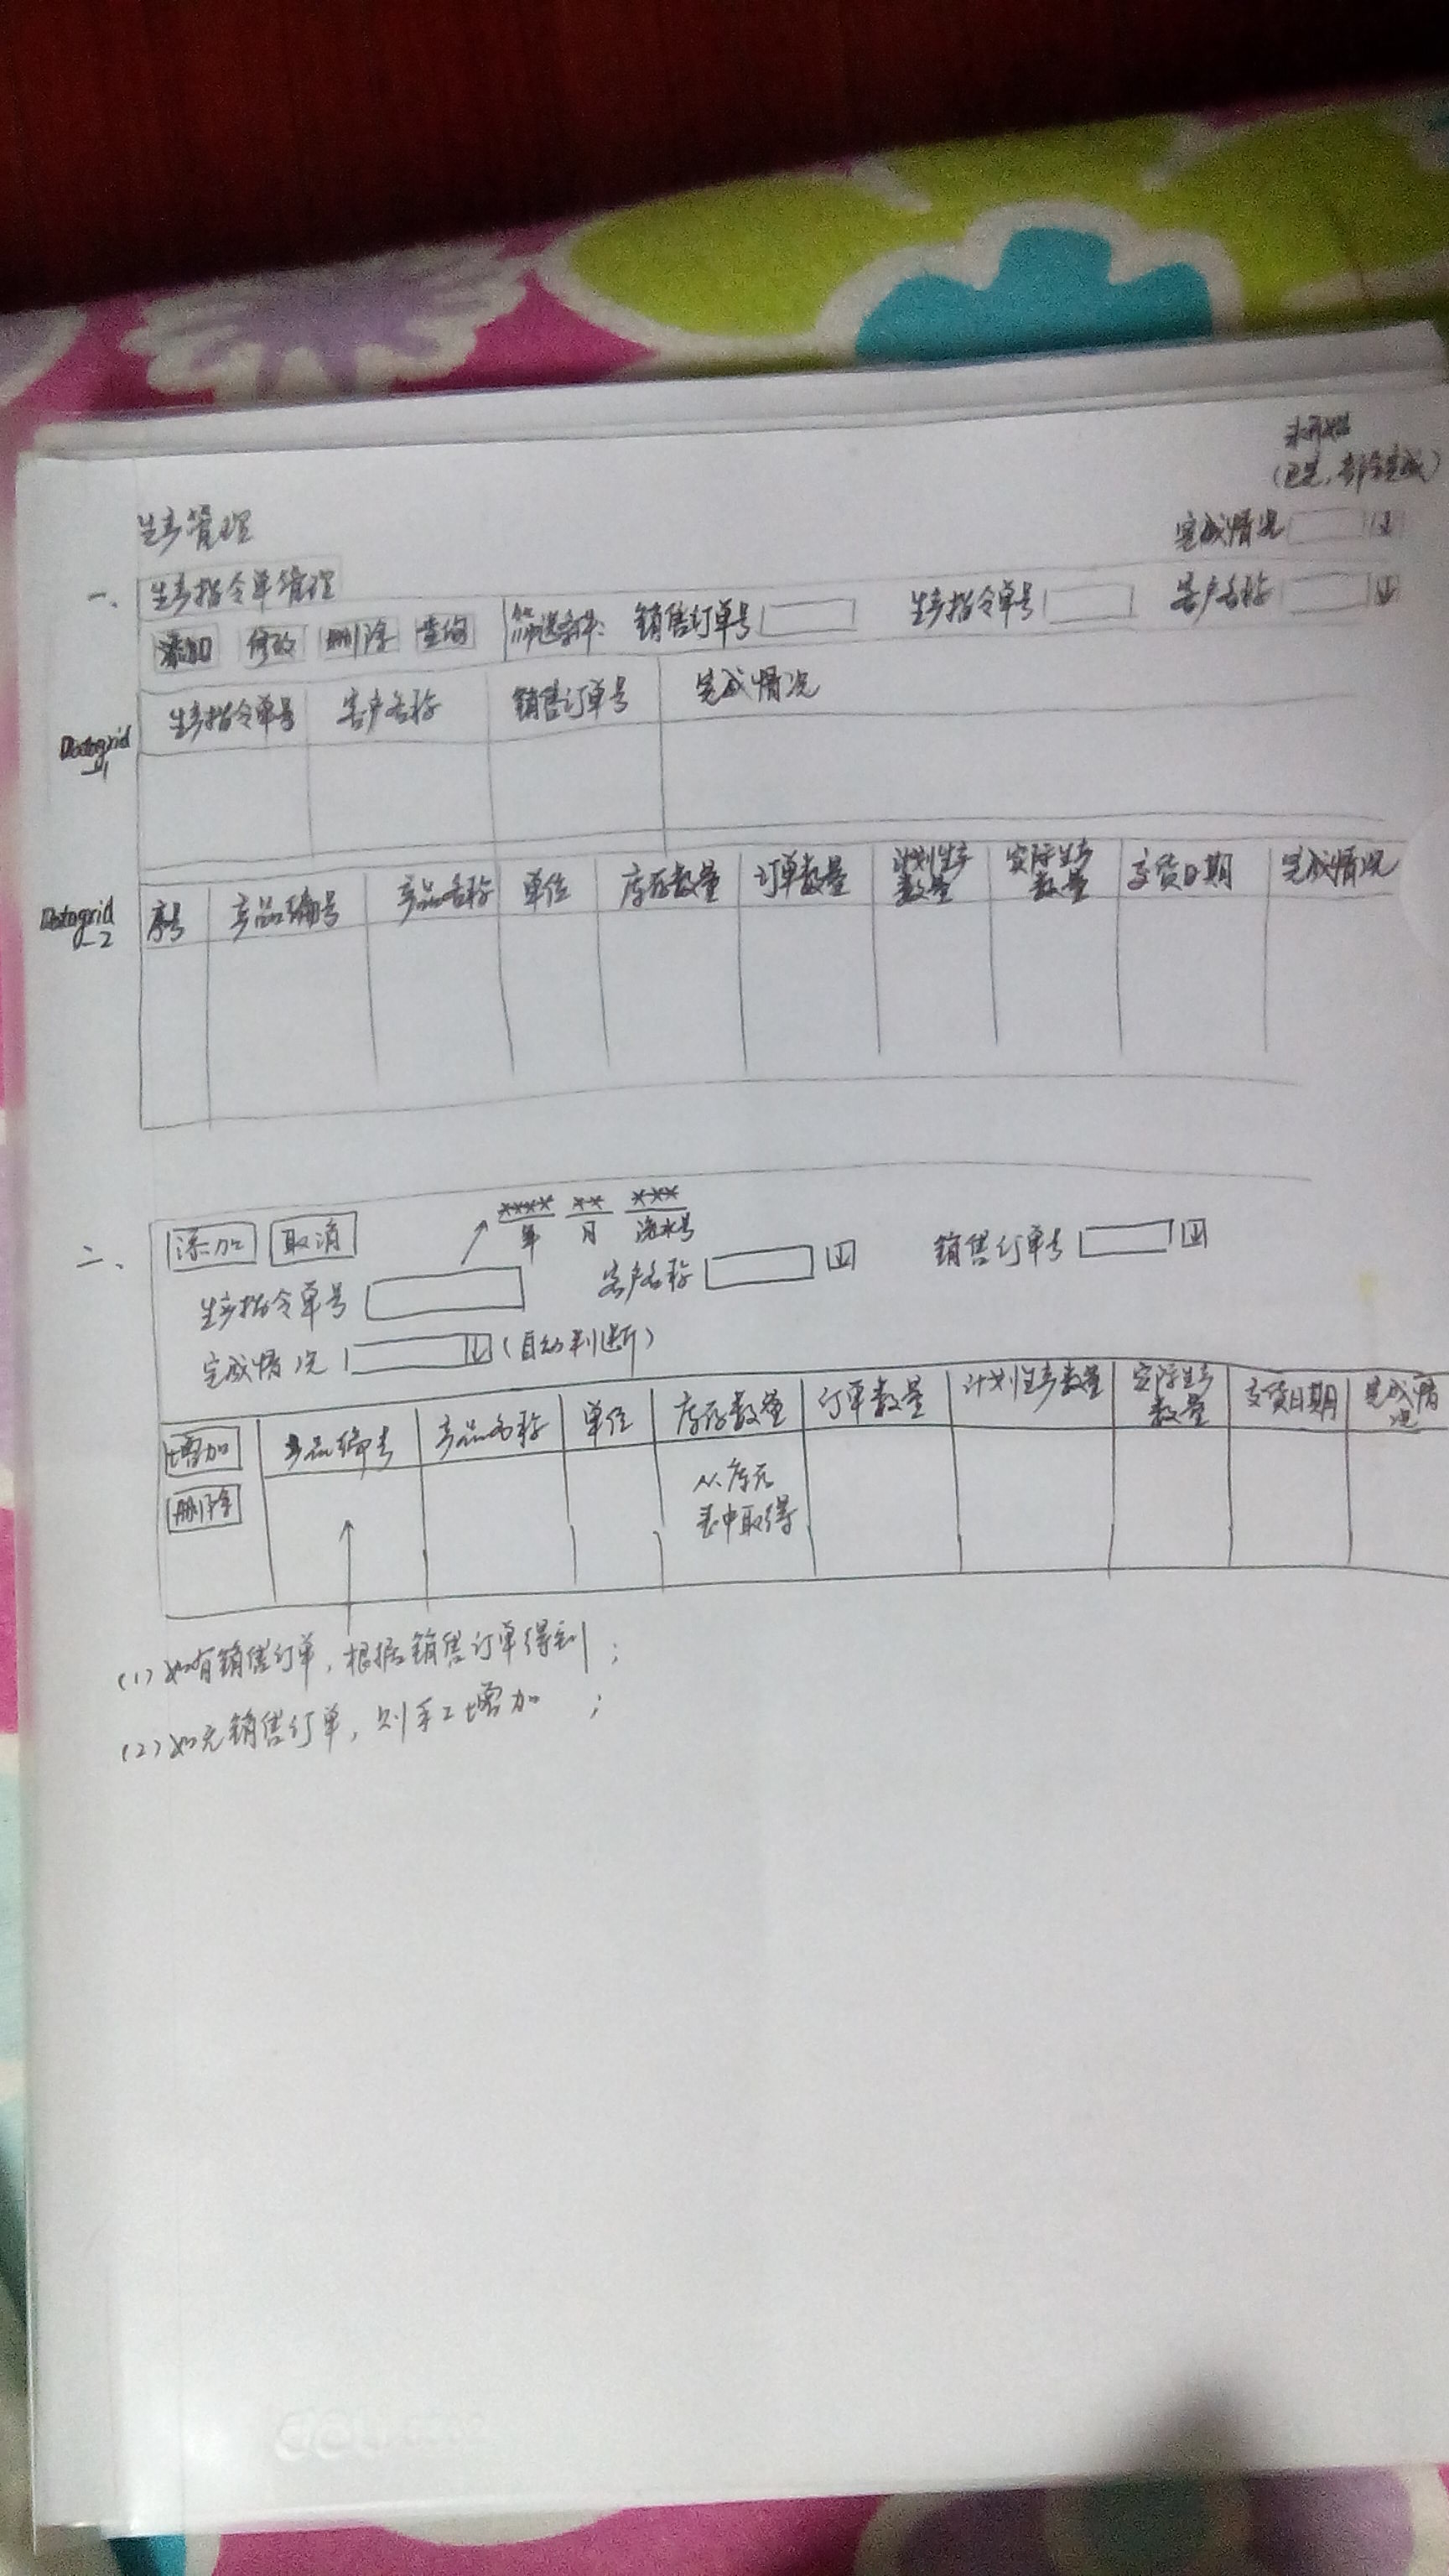 未开始
(已完,部分完成)
生产管理
完成情况
一、生产指令单管理
添加 修改 删除 查询 筛选条件: 销售订单号 生产指令单号 客户名称
Datagrid_1
生产指令单号 客户名称 销售订单号 完成情况
Datagrid_2
序号 产品编号 产品名称 单位 库存数量 订单数量 计划生产数量 实际生产数量 交货日期 完成情况
二、
添加 取消
**** ** ***
年 月 流水号
生产指令单号 客户名称 销售订单号
完成情况 (自动判断)
增加 产品编号 产品名称 单位 库存数量 订单数量 计划生产数量 实际生产数量 交货日期 完成情况
删除
从库存
表中取得
(1)如有销售订单,根据销售订单得到;
(2)如无销售订单,则手工增加;